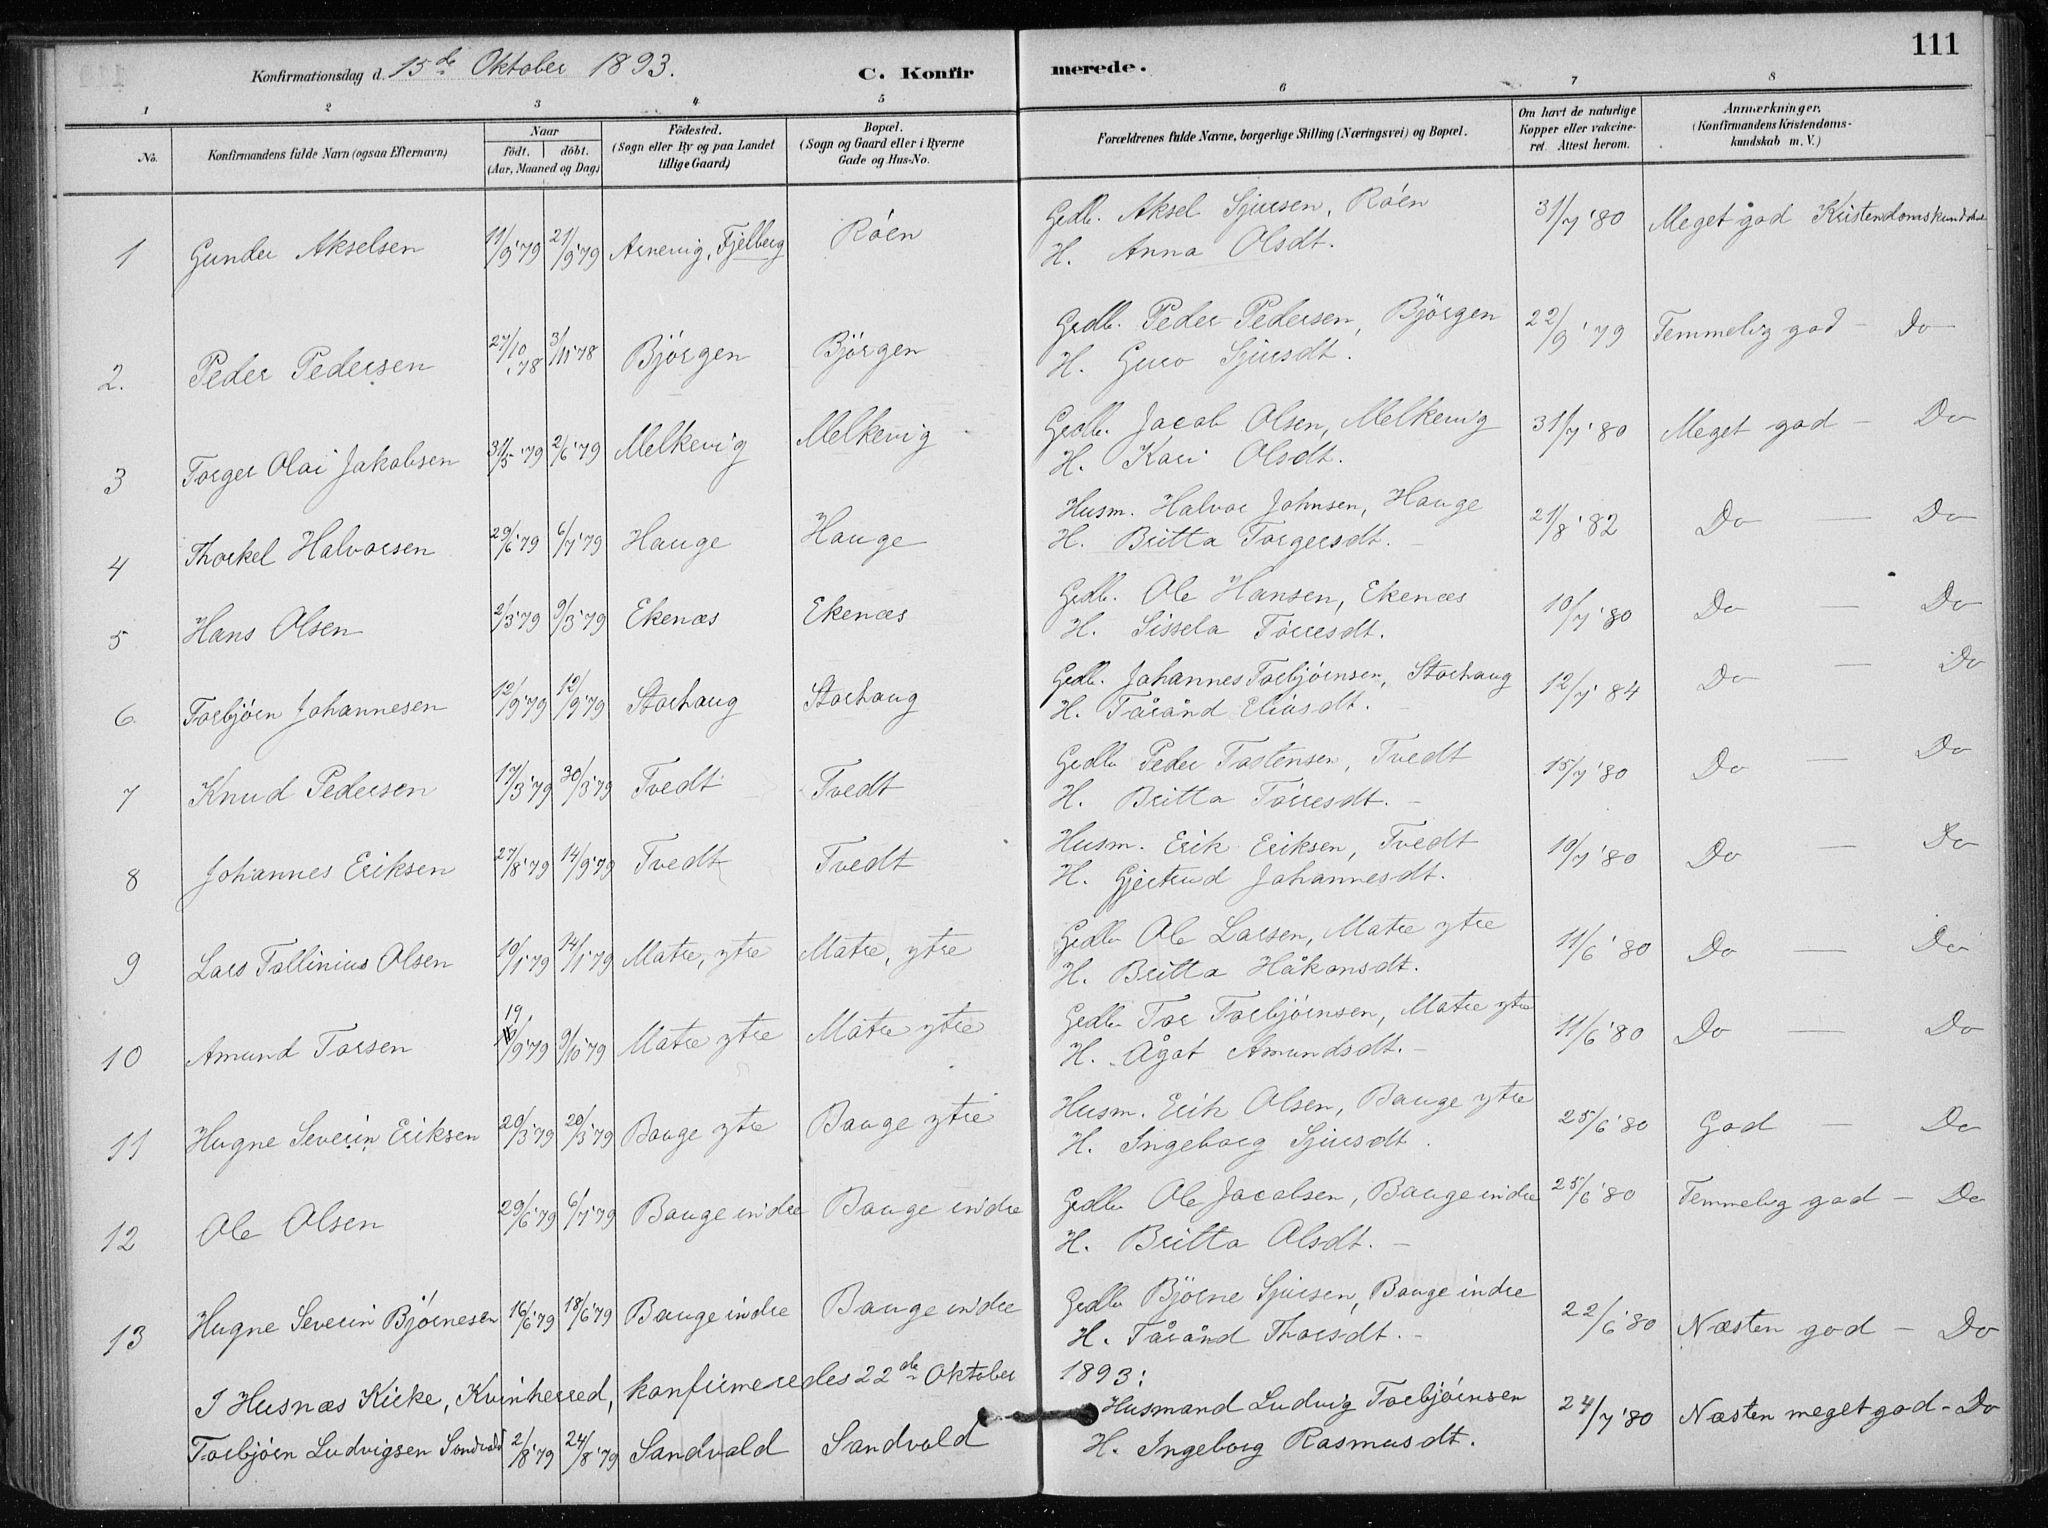 111
Konfirmationsdag d. 15de Oktober 1893. C. Konfirmerede.
1 2 3 4 5 6 7 8
No. Konfirmandens fulde Navn (ogsaa Efternavn) Naar født, døbt. (Aar, Maaned og Dag) Fødested. (Sogn eller By og paa Landet tillige Gaard) Bopæl. (Sogn og Gaard eller i Byerne Gade og Hus-No. Forældrenes fulde Navne, borgerlige Stilling (Næringsvei) og Bopæl. Om havt de naturlige Kopper eller vakcineret. Attest herom. Anmærkninger. (Konfirmandens Kristendomskundskab m. V.)
1 Gunder Akselsen 11/9 '79 21/9 '79 Arnevig, Fjelberg Røen Grdb. Aksel Sjursen, Røen 31/7 '80 Meget god Kristendomskundskab
H. Anna Olsdt.
2. Peder Pedersen 27/10 '78 3/11 '78 Bjørgen Bjørgen Grdb. Peder Pedersen, Bjørgen 22/9 '79 Temmelig god - Do
H. Guro Sjursdt.
3 Torger Olai Jakobsen 31/5 '79 2/6 '79 Melkevig Melkevig Grdb. Jacob Olsen, Melkevig 31/7 '80 Meget god - Do
H. Kari Olsdt.
4 Thorkel Halvorsen 29/6 '79 6/7 '79 Hauge Hauge Husm. Halvor Johnsen, Hauge 21/8 '82 Do — Do
H. Britta Torgersdt. -
5 Hans Olsen 2/3 '79 9/3 '79 Ekenæs Ekenæs Grdb. Ole Hansen, Ekenæs 10/7 '80 Do — Do
H. Sissela Tørresdt.
6 Torbjørn Johannesen 12/9 '79 12/9 '79 Storhaug Storhaug Grdb. Johannes Torbjørnsen, Storhaug 12/7 '84 Do — Do
H. Tårånd Eliasdt. -
7 Knud Pedersen 17/3 '79 30/3 '79 Tvedt Tvedt Grdb. Peder Tostensen, Tvedt 15/7 '80 Do — Do
H. Britta Tørresdt. -
8 Johannes Eriksen 27/8 '79 14/9 '79 Tvedt Tvedt Husm. Erik Eriksen, Tvedt 10/7 '80 Do — Do
H. Gjertrud Johannesdt.
9 Lars Tollinius Olsen 10/1 '79 14/1 '79 Matre, ytre Matre, ytre Grdb. Ole Larsen, Matre ytre 11/6 '80 Do — Do
H. Britta Håkonsdt.
10 Amund Torsen 19/9 '79 9/10 '79 Matre ytre Matre ytre Grdb. Tor Torbjørnsen, Matre ytre 11/6 '80 Do — Do
H. Ågot Amundsdt. -
11 Hugne Severin Eriksen 20/3 '79 20/3 '79 Bauge ytre Bauge ytre Husm. Erik Olsen, Bauge ytre 25/6 '80 God — Do
H. Ingeborg Sjursdt.
12 Ole Olsen 29/6 '79 6/7 '79 Bauge indre Bauge indre Grdb. Ole Jacobsen, Bauge indre 25/6 '80 Temmelig god - Do
H. Britta Olsdt. -
13 Hugne Severin Bjørnesen 16/6 '79 18/6 '79 Bauge indre Bauge indre Grdb. Bjørne Sjursen, Bauge indre 22/6 '80 Næsten god - Do
H. Tårånd Thorsdt. -
I Husnæs Kirke, Kvinherred, konfirmeredes 22de Oktober 1893:
Torbjørn Ludvigsen Sandvold 2/8 '79 24/8 '79 Sandvold Sandvold Husmand Ludvig Torbjørnsen 24/7 '80 Næsten meget god - Do
H. Ingeborg Rasmusdt.